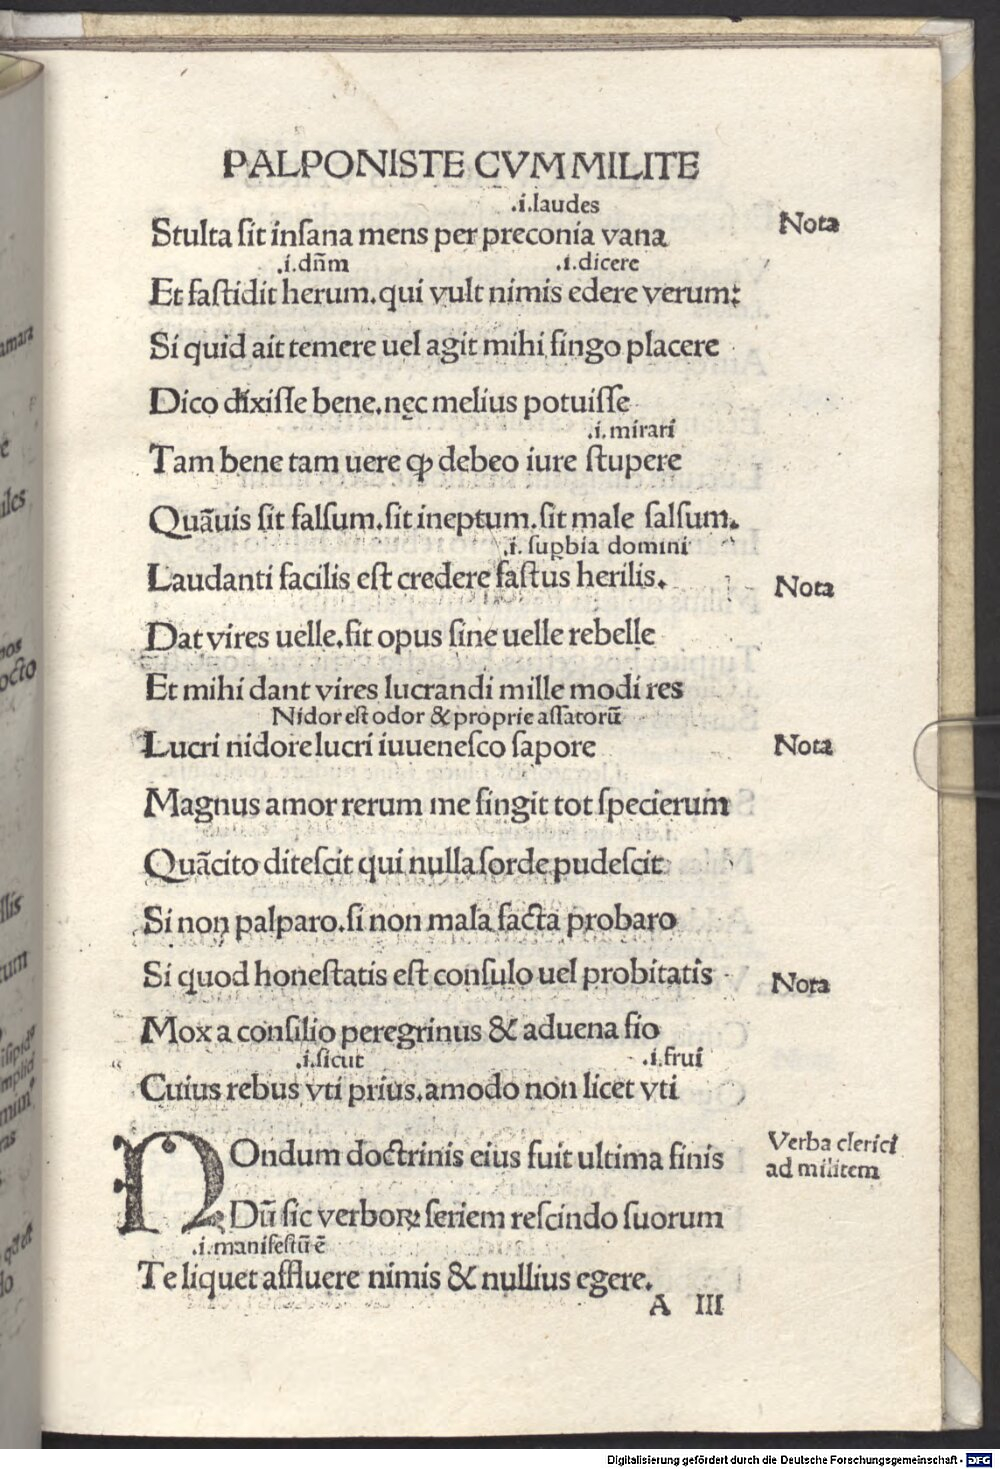 PALPONISTE CVM MILITE
.i.laudes
Stulta sit insana mens per preconia vana
Nota
.i.dñm .i.dicere
Et fastidit herum.qui vult nimis edere verum:
Si quid ait temere uel agit mihi fingo placere
Dico dixisse bene.nec melius potuisse
.i.mirari
Tam bene tam uere ꝙ debeo iure stupere
Quãuis sit falsum.sit ineptum.sit male salsum.
.i. supbia domini
Laudanti facilis est credere fastus herilis.
Nota
Dat vires uelle.sit opus sine uelle rebelle
Et mihi dant vires lucrandi mille modi res
Nidor est odor & proprie assatorũ
Lucri nidore lucri iuuenesco sapore
Nota
Magnus amor rerum me fingit tot specierum
Quãcito ditescit qui nulla sorde pudescit
Si non palparo.si non mala facta probaro
Si quod honestatis est consulo uel probitatis
Nota
Mox a consilio peregrinus & aduena fio
.i.sicut .i.frui
Cuius rebus vti prius.amodo non licet vti
NOndum doctrinis eius fuit ultima finis
Verba clerici
ad militem
Dũ sic verboꝝ seriem rescindo suorum
.i.manifestũ ẽ
Te liquet affluere nimis & nullius egere.
A III
amara
octo
Digitalisierung gefördert durch die Deutsche Forschungsgemeinschaft - DFG